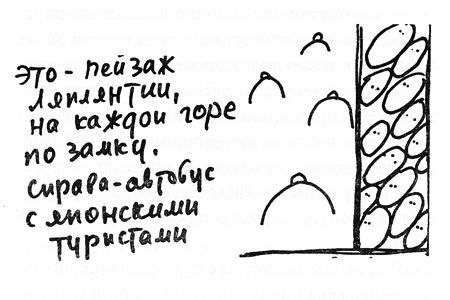 это - пейзаж
Ляплянтии,
на каждой горе
по замку.
справа - автобус
с японскими
туристами